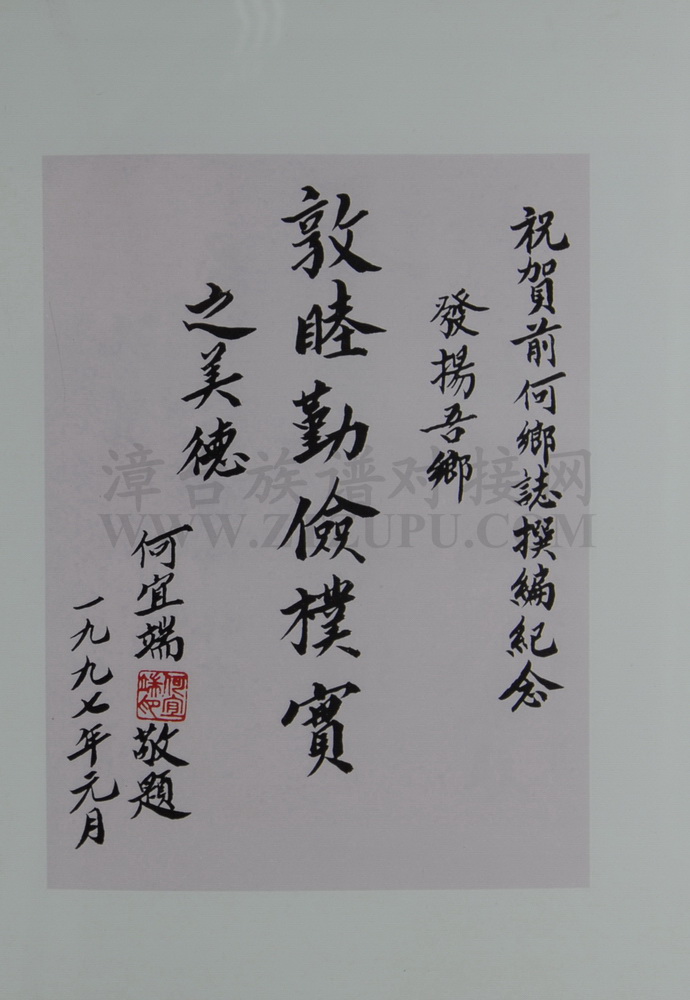 祝賀前何鄉誌撰編紀念
發揚吾鄉
敦睦勤儉樸實
之美德
何宜端
何宜端印
敬題
一九九七年元月
漳台族谱对接网
WWW.ZTZUPU.COM